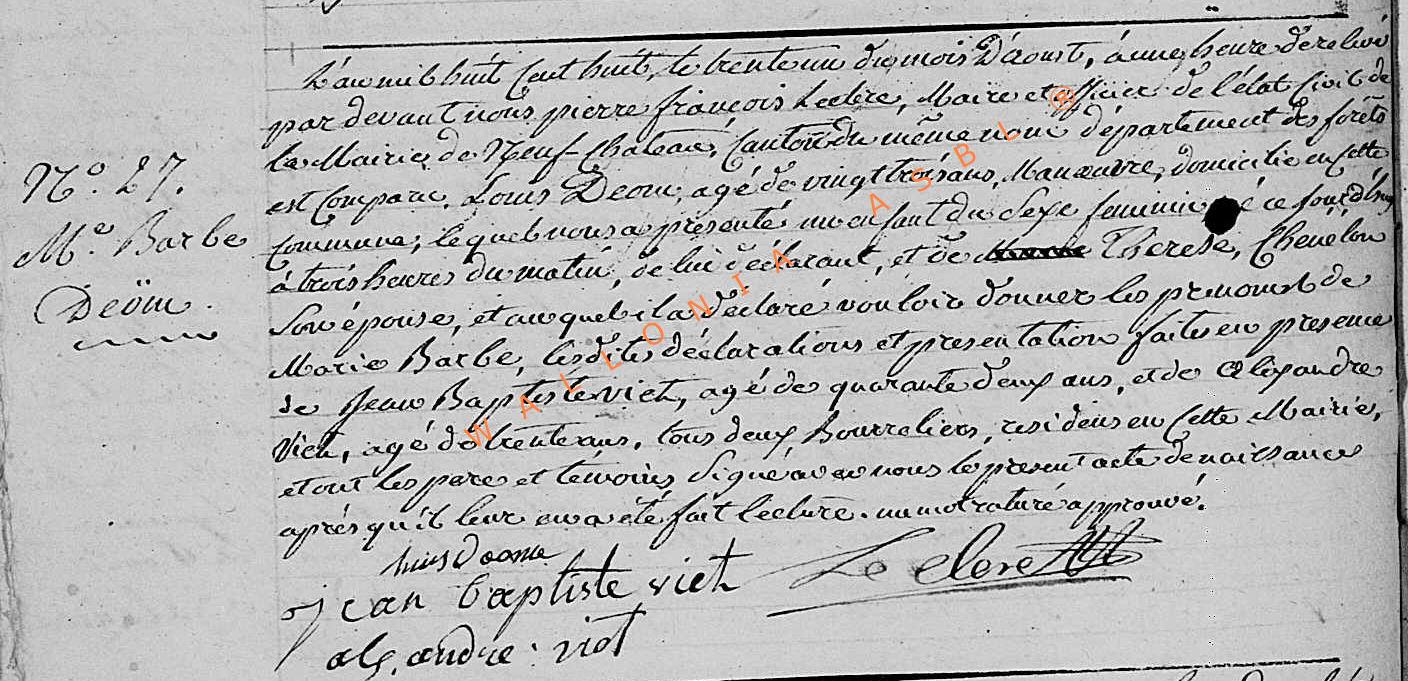 N.º 27.
M.e Barbe
Deöm.
L'an mil huit cent huit, le trente un du mois D'aoust, à une heure de relevé
par devant nous pierre françois Leclere, Maire et officier de l'état Civil de
la Mairie de Neuf-Chateau, Canton du même nom département des forêts
est Comparu, Louis Deom, agé de vingt trois ans, Manœuvre, domicilié en Cette
Commune; lequel nous a présenté un enfant du Sexe feminin é ce jourd'huy
à trois heures du matin, de lui déclarant, et de Therese, Chenêlon
Son épouse, et auquel il a déclaré vouloir donner les prenoms de
Marie Barbe, lesdites déclarations et presentation faites en présence
de Jean Baptiste viet, agé de quarante deux ans, et de Alexandre
Viet, agé de trente ans, tous deux Bourreliers, residens en Cette Mairie,
et ont les pere et témoins Signé avec nous le présent acte de naissance
après qu'il leur en a été fait lecture. un mot raturé approuvé.
Louis Deome
jean baptiste viet Leclere
alexandre. viet
WALLONIA ASBL ®